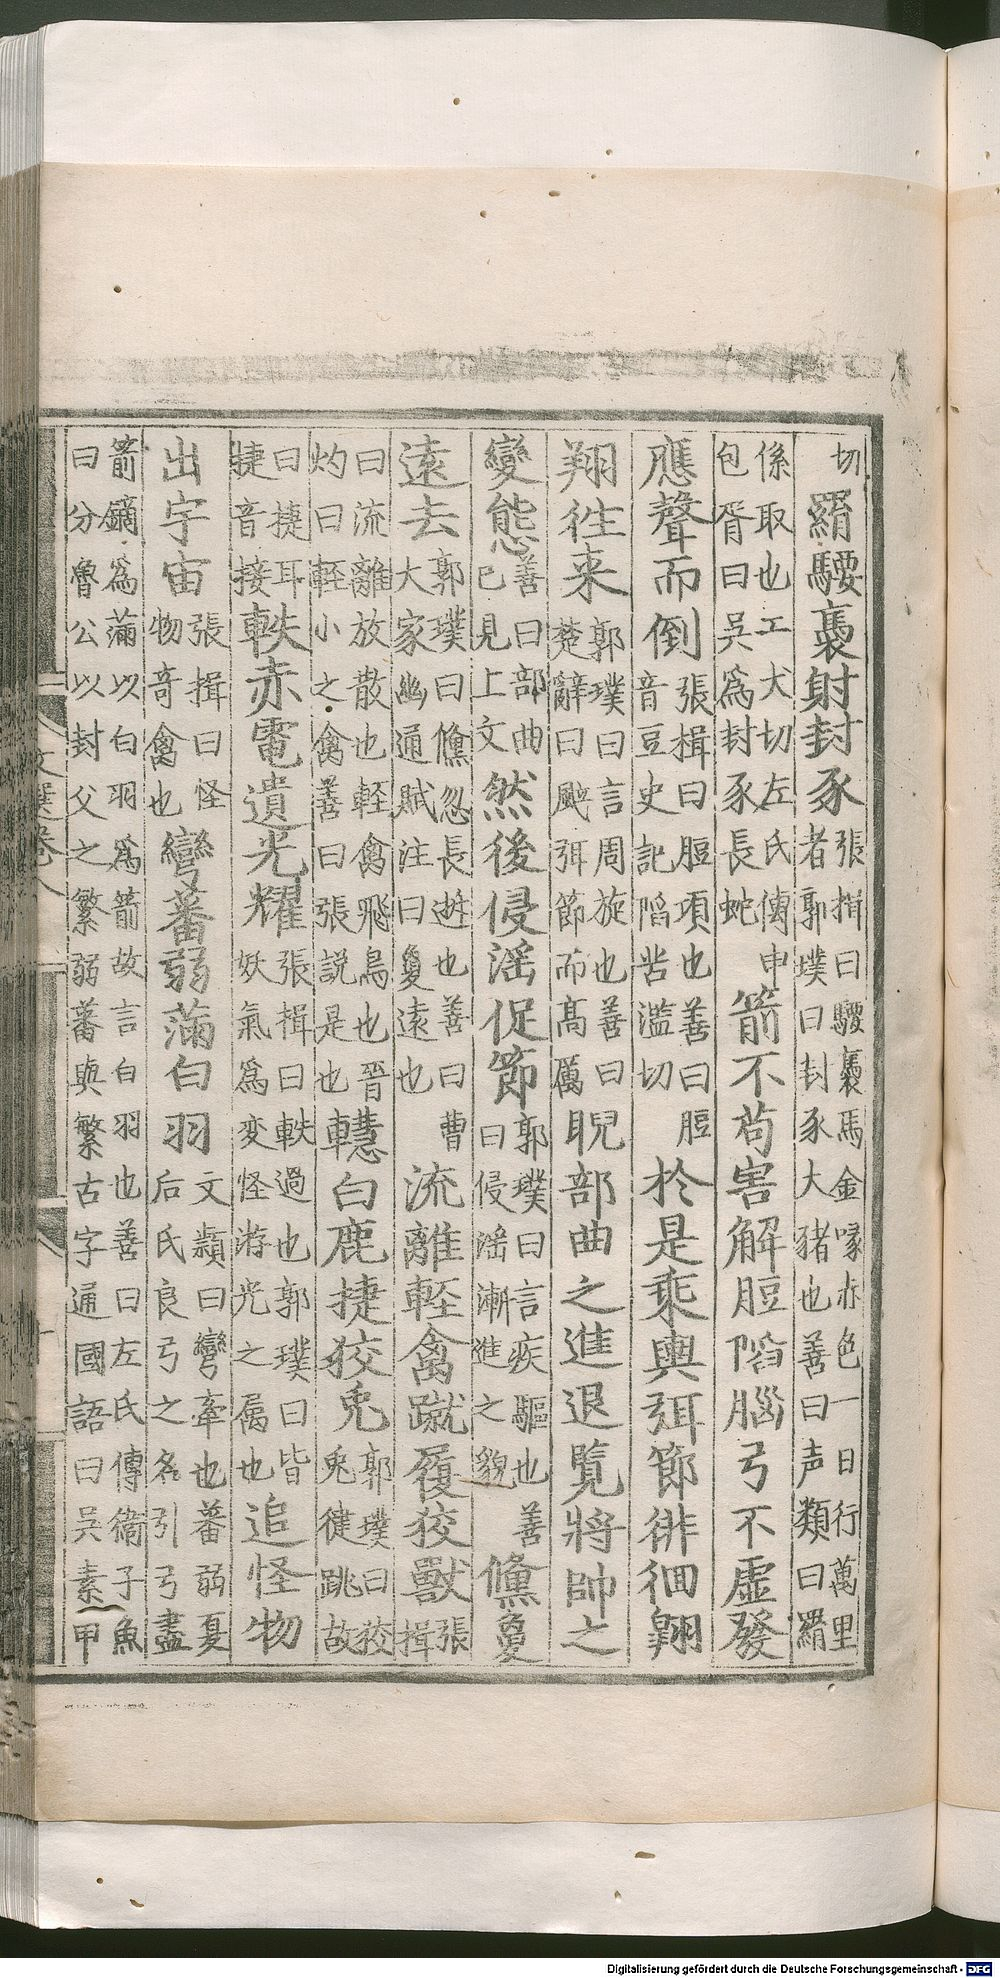 切 羂騕褭射封豕 張揖曰騕褭馬金喙赤色一日行萬里 者郭璞曰封豕大豬也善曰声類曰羂
係取也工犬切左氏傳申 包胥曰吳為封豕長蛇 箭不苟害解脰陷腦弓不虛發
應聲而倒 張揖曰脰項也善曰脰 音豆史記陷苦濫切 於是乘輿弭節徘徊翱
翔往来 郭璞曰言周旋也善曰 楚辭曰颰弭節而髙厲 睨部曲之進退覽將帥之
變態 善曰部曲 已見上文 然後侵淫促節 郭璞曰言疾驅也善 曰侵淫漸進之貌 儵夐
遠去 郭璞曰儵忽長逝也善曰曹 大家幽通賦注曰夐遠也 流離輕禽蹴履狡獸 張 揖
曰流離放散也輕禽飛鳥也晉 灼曰輕小之禽善曰張説是也 轊白鹿捷狡兎 郭璞曰狡 兎健跳故
曰捷耳 捷音接 軼赤電遺光耀 張揖曰軼過也郭璞曰皆 妖氣為变怪游光之屬也 追怪物
出宇宙 張揖曰怪 物奇禽也 彎蕃弱滿白羽 文穎曰彎牽也蕃弱夏 后氏良弓之名引弓盡
箭鏑為滿以白羽為箭故言白羽也善曰左氏傳衛子魚 曰分魯公以封父之繁弱蕃與繁古字通國語曰吳素甲
文選卷八
Digitalisierung gefördert durch die Deutsche Forschungsgemeinschaft - DFG